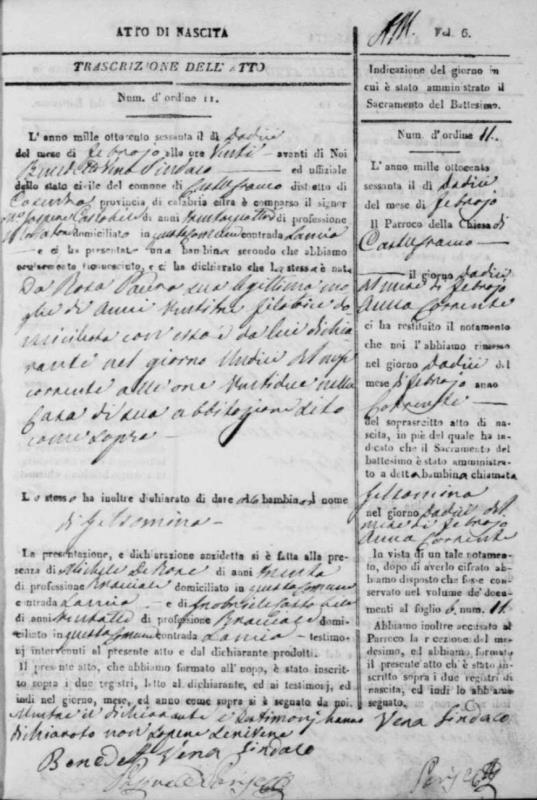 ATTO DI NASCITA
TRASCRIZIONE DELL'ATTO
Num. d'ordine 11.
L'anno mille ottocento sessanta il di Dodici
del mese di Febrajo alle ore Venti avanti di Noi
Benedetto Vena Sindaco ed uffiziale
dello stato civile del comune di Castelfranco distretto di
Cosenza provincia di calabria citra è comparso il signor
di anni di professione
domiciliato in questo Comune contrada Lamia
e ci ha presentato una bambina secondo che abbiamo
ocularmente riconosciuto, e ci ha dichiarato che la stessa è nata
Da Rosa sua legittima mo-
glie di anni ventitre filatrice do-
miciliata con esso e da lui dichia-
rante nel giorno Undici del mese
corrente alle ore Ventidue nella
Casa di sua abbitazione detto
come sopra
Lo stesso ha inoltre dichiarato di dare alla bambina il nome
di Gelsomina
La presentazione, e dichiarazione anzidetta si è fatta alla pre-
senza di Michele De Rose di anni trenta
di professione Bracciale domiciliato in questo Comune
contrada Lamia e di
di anni di professione Bracciale domi-
ciliato in questo Comune contrada Lamia testimo-
nj intervenuti al presente atto e dal dichiarante prodotti.
Il presente atto, che abbiamo formato all'uopo, è stato inscrit-
to sopra i due registri, letto al dichiarante, ed ai testimonj, ed
indi nel giorno, mese, ed anno come sopra si è segnato da noi.
Mentre il dichiarante e testimonj hanno
dichiarato non sapere scrivere
Benedetto Vena Sindaco
Fol. 6.
Indicazione del giorno in
cui è stato amministrato il
Sacramento del Battesimo.
Num. d'ordine 11.
L'anno mille ottocento
sessanta il di Dodici
del mese di Febrajo
Il Parroco della Chiesa di
Castelfranco
il giorno Dodici
del mese di Febrajo
Anno Corrente
ci ha restituito il notamento
che noi l'abbiamo rimesso
nel giorno Dodici del
mese di Febrajo anno
Corrente
del soprascritto atto di na-
scita, in piè del quale ha in-
dicato che il Sacramento del
battesimo è stato amministra-
to a detta bambina chiamata
Gelsomina
nel giorno Dodici del
mese di Febrajo
Anno Corrente
In vista di un tale notamen-
to, dopo di averlo cifrato ab-
biamo disposto che fosse con-
servato nel volume de' docu-
menti al foglio 6. num. 11.
Abbiamo inoltre accusato al
Parroco la ricezione del me-
desimo, ed abbiamo formato
il presente atto ch'è stato in-
scritto sopra i due registri di
nascita, ed indi lo abbiamo
segnato.
Vena Sindaco